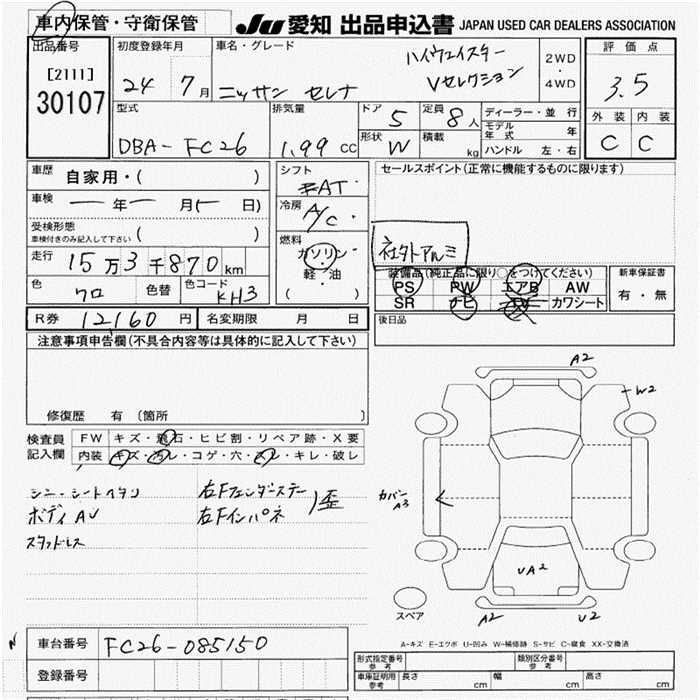 車内保管・守衛保管
JU 愛知 出品申込書 JAPAN USED CAR DEALERS ASSOCIATION
出品番号
[2111]
30107
初度登録年月
24 7月
車名・グレード
ハイウェイスター
ニッサン セレナ Vセレクション
2WD
・
4WD
評価点
3.5
外装 内装
C C
型式
DBA-FC26
排気量
1.99 CC
ドア 5
形状 W
定員 8人
積載 kg
ディーラー・並行
モデル年式 年
ハンドル 左・右
車歴 自家用・( )
車検 ー年ー月(ー日)
受検形態
車検付きのみ記入して下さい ( )
走行 15万3千870km
色 クロ 色替 色コード KH3
シフト
FAT・
冷房
A/C・
燃料
ガソリン・
軽・油
( )
セールスポイント(正常に機能するものに限ります)
社外アルミ
装備品(純正品に限り○をつけてください)
PS PW エアB AW
SR ナビ TV カワシート
新車保証書
有・無
後日品
R券 12160円 名変期限 月 日
注意事項申告欄(不具合内容等は具体的に記入して下さい)
修復歴 有 (箇所
検査員
記入欄
FW キズ・飛石・ヒビ割・リペア跡・X要
内装 キズ・汚レ・コゲ・穴・スレ・キレ・破レ
シミ・シートヘタリ
ボディAU
スタッドレス
右Fフェンダーステー
右Fインパネ
)歪
A2
W2
カバー
A3
UA2
A2
U2
スペア
A-キズ E-エクボ U-凹み W-補修跡 S-サビ C-腐食 XX-交換済
車台番号 FC26-085150
登録番号
形式指定番号
参考
類別区分番号
参考
車庫証明用
参考
長さ cm 幅 cm 高さ cm